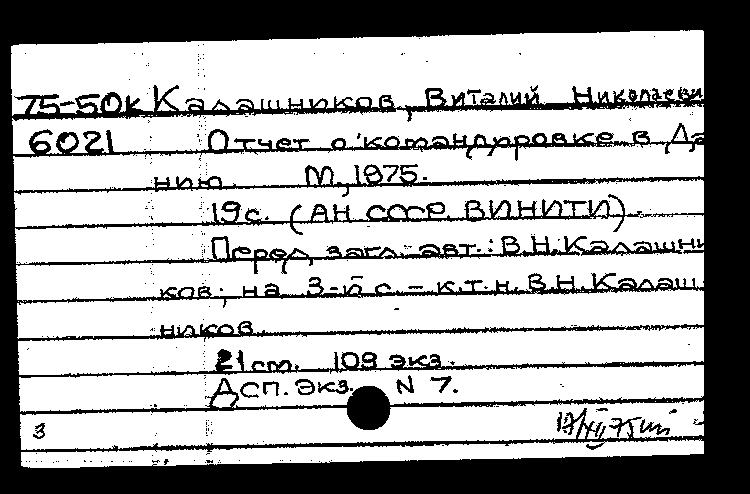 75-50к Калашников, Виталий Николаеви
6021 Отчет о командировке в Да
нию. М, 1975.
19 с. (АН СССР. ВИНИТИ).
Перед загл. авт.: В.Н.Калашни
ков; на 3-й с. - к.т.н. В.Н.Калаш
ников.
21 cm. 109 экз.
Дсп. Экз. N 7.
3 17/XII 75